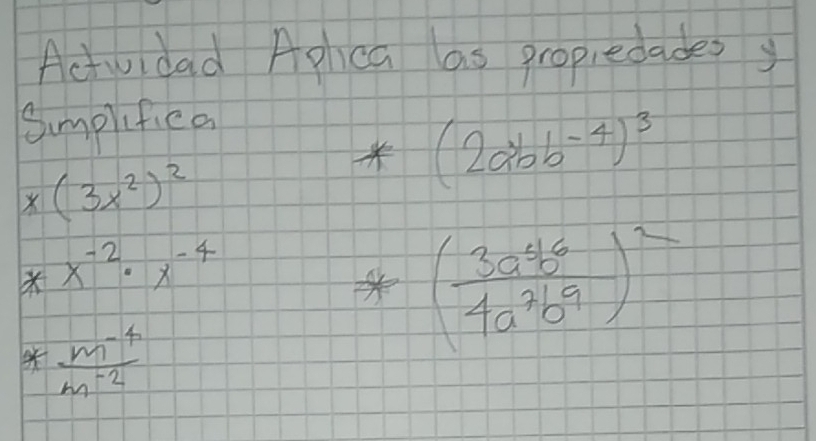 Actividad Aplica las propiedades y
Simplifica
* (3x²)²
* x⁻² · x⁻⁴
* m⁻⁴/m⁻²
* (2a bb⁻⁴)³
* (3a b⁶/4a⁷b⁹)²